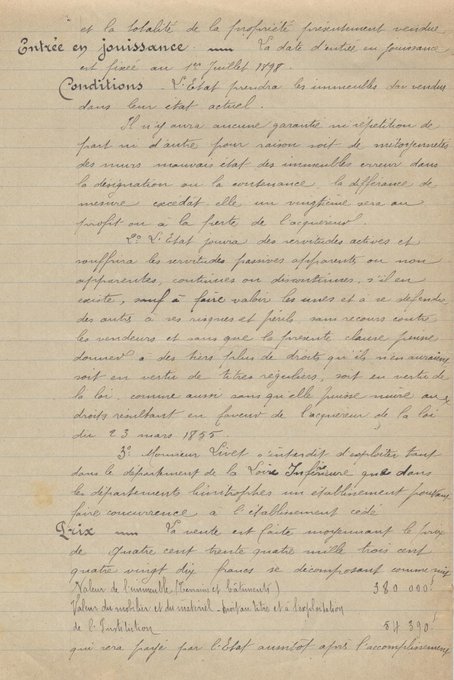 et la totalité de la propriété présentement vendue
Entrée en jouissance. La date d'entrée en jouissance
est fixée au 1er Juillet 1898
Conditions. L'Etat prendra les immeubles vendus
dans leur état actuel.
Il n'y aura aucune garantie ni répétition de
part ni d'autre pour raison soit de mitoyennetés
des murs mauvais état des immeubles erreur dans
la désignation ou la contenance, la différence de
mesure excédat-elle un vingtième sera au
profit ou à la perte de l'acquéreur.
2° L'Etat jouira des servitudes actives et
souffrira les servitudes passives apparentes ou non
apparentes, continues ou discontinues, s'il en
existe, sauf à faire valoir les unes et à se défendre
des autres à ses risques et périls, sans recours contre
les vendeurs et sans que la présente clause puisse
donner à des tiers plus de droits qu'ils n'en auraient
soit en vertu de titres réguliers, soit en vertu de
la loi, comme aussi sans qu'elle puisse nuire aux
droits résultant en faveur de l'acquéreur de la loi
du 23 mars 1855.
3° Monsieur Livet s'interdit d'exploiter tant
dans le département de la Loire Inférieure que dans
les départements limitrophes un établissement pouvant
faire concurrence à l'établissement cédé
Prix. La vente est faite moyennant le prix
de quatre cent trente quatre mille trois cent
quatre vingt dix francs se décomposant comme suit
Valeur de l'immeuble (Terrains et bâtiments) 380 000f
Valeur du mobilier et du matériel - droit au titre et à l'exploitation
de l'Institution 54 390f
qui sera payé par l'Etat aussitôt après l'accomplissement